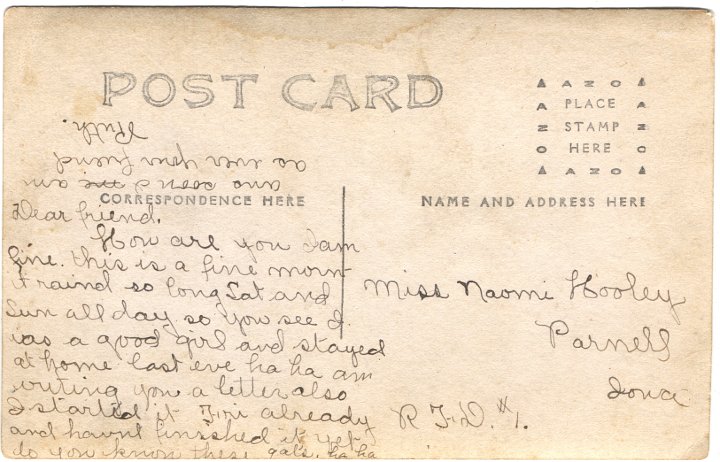 POST CARD
AZO
PLACE
STAMP
HERE
AZO
CORRESPONDENCE HERE
NAME AND ADDRESS HERE
Dear friend.
How are you I am
fine. this is a fine morn
it raind so long Sat and
Sun all day so you see I
was a good girl and stayed
at home last eve ha ha am
writing you a letter also
I started it Fri already
and havnt finished it yet
do you know these gals. ha ha
as ever your friend
Ruth
Miss Naomi Hooley
Parnell
Iowa
R.F.D. #1.